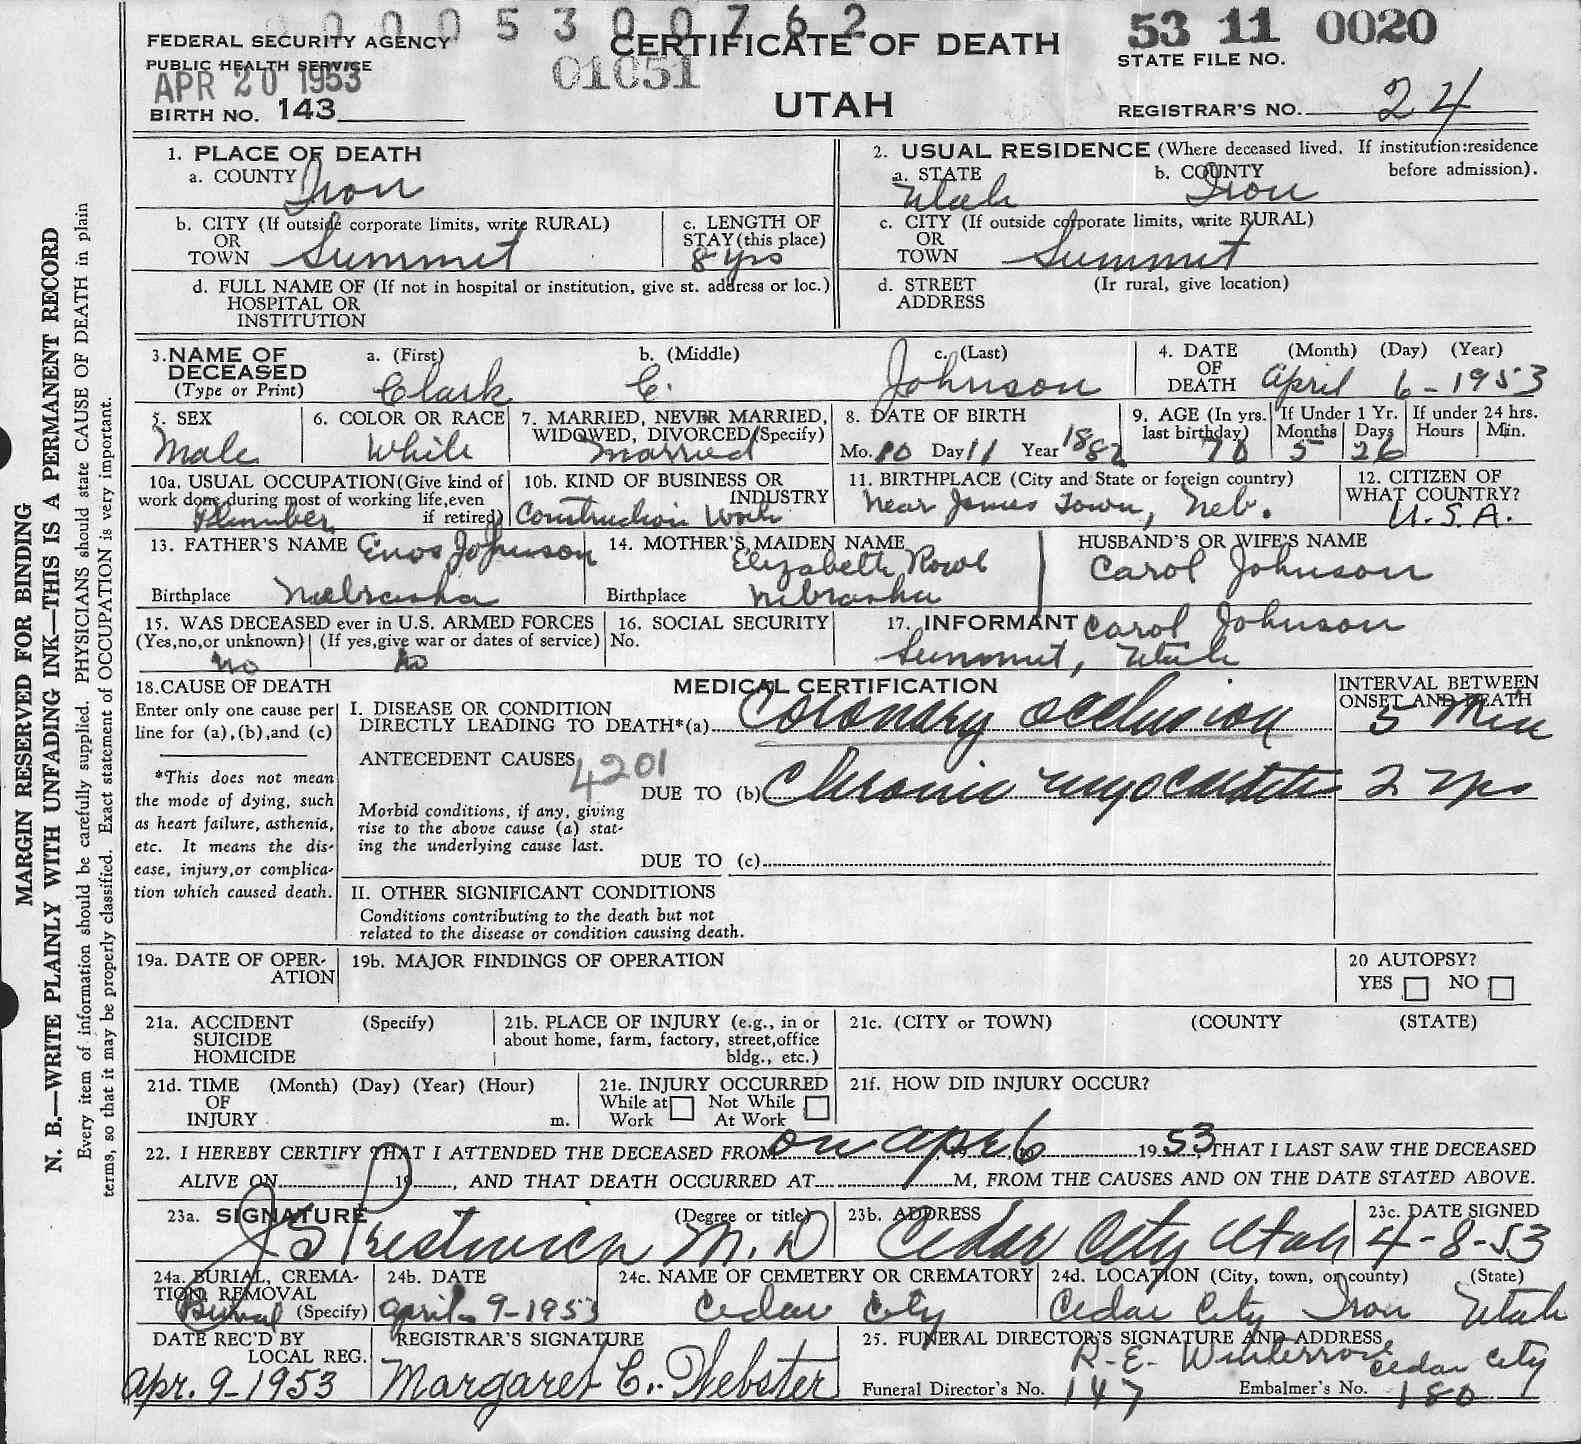 0 0 0 0 5 3 0 0 7 6 2
53 11 0020
FEDERAL SECURITY AGENCY
CERTIFICATE OF DEATH
PUBLIC HEALTH SERVICE
STATE FILE NO.
APR 20 1953
01051
BIRTH NO. 143
UTAH
REGISTRAR'S NO. 24
1. PLACE OF DEATH
a. COUNTY Iron
b. CITY (If outside corporate limits, write RURAL)
OR
TOWN Summit
c. LENGTH OF
STAY (this place)
8 yrs
d. FULL NAME OF (If not in hospital or institution, give st. address or loc.)
HOSPITAL OR
INSTITUTION
2. USUAL RESIDENCE (Where deceased lived. If institution: residence
before admission).
a. STATE Utah
b. COUNTY Iron
c. CITY (If outside corporate limits, write RURAL)
OR
TOWN Summit
d. STREET (Ir rural, give location)
ADDRESS
3. NAME OF DECEASED
(Type or Print)
a. (First) Clark
b. (Middle) C.
c. (Last) Johnson
4. DATE OF DEATH
(Month) (Day) (Year)
April 6-1953
5. SEX
Male
6. COLOR OR RACE
White
7. MARRIED, NEVER MARRIED,
WIDOWED, DIVORCED (Specify)
Married
8. DATE OF BIRTH
Mo. 10 Day 11 Year 1882
9. AGE (In yrs. last birthday)
70
If Under 1 Yr.
Months 5 Days 26
If under 24 hrs.
Hours Min.
10a. USUAL OCCUPATION (Give kind of
work done during most of working life, even
if retired)
Plumber
10b. KIND OF BUSINESS OR
INDUSTRY
Construction Work
11. BIRTHPLACE (City and State or foreign country)
near James Town, Neb.
12. CITIZEN OF
WHAT COUNTRY?
U.S.A.
13. FATHER'S NAME Enos Johnson
Birthplace Nebraska
14. MOTHER'S MAIDEN NAME
Elizabeth
Birthplace Nebraska
HUSBAND'S OR WIFE'S NAME
Carol Johnson
15. WAS DECEASED ever in U.S. ARMED FORCES
(Yes, no, or unknown) (If yes, give war or dates of service)
no no
16. SOCIAL SECURITY
No.
17. INFORMANT Carol Johnson
Summit, Utah
18. CAUSE OF DEATH
Enter only one cause per
line for (a), (b), and (c)
*This does not mean
the mode of dying, such
as heart failure, asthenia,
etc. It means the dis-
ease, injury, or complica-
tion which caused death.
MEDICAL CERTIFICATION
I. DISEASE OR CONDITION
DIRECTLY LEADING TO DEATH* (a) Coronary occlusion
INTERVAL BETWEEN
ONSET AND DEATH
5 Min
ANTECEDENT CAUSES
4201
DUE TO (b) Chronic myocarditis 2 yrs
Morbid conditions, if any, giving
rise to the above cause (a) stat-
ing the underlying cause last.
DUE TO (c)
II. OTHER SIGNIFICANT CONDITIONS
Conditions contributing to the death but not
related to the disease or condition causing death.
19a. DATE OF OPER-
ATION
19b. MAJOR FINDINGS OF OPERATION
20 AUTOPSY?
YES NO
21a. ACCIDENT (Specify)
SUICIDE
HOMICIDE
21b. PLACE OF INJURY (e.g., in or
about home, farm, factory, street, office
bldg., etc.)
21c. (CITY or TOWN) (COUNTY) (STATE)
21d. TIME (Month) (Day) (Year) (Hour)
OF
INJURY m.
21e. INJURY OCCURRED
While at Work Not While At Work
21f. HOW DID INJURY OCCUR?
22. I HEREBY CERTIFY THAT I ATTENDED THE DECEASED FROM on Apr 6 1953, THAT I LAST SAW THE DECEASED
ALIVE ON 19, AND THAT DEATH OCCURRED AT M, FROM THE CAUSES AND ON THE DATE STATED ABOVE.
23a. SIGNATURE (Degree or title)
J S Prestwich M.D
23b. ADDRESS
Cedar City Utah
23c. DATE SIGNED
4-8-53
24a. BURIAL, CREMA-
TION, REMOVAL
(Specify)
Burial
24b. DATE
April 9-1953
24c. NAME OF CEMETERY OR CREMATORY
Cedar City
24d. LOCATION (City, town, or county) (State)
Cedar City Iron Utah
DATE REC'D BY
LOCAL REG.
Apr. 9-1953
REGISTRAR'S SIGNATURE
Margaret C. Webster
25. FUNERAL DIRECTOR'S SIGNATURE AND ADDRESS
R-E- Winterrose Cedar City
Funeral Director's No. 147
Embalmer's No. 180
MARGIN RESERVED FOR BINDING
N. B.—WRITE PLAINLY WITH UNFADING INK—THIS IS A PERMANENT RECORD
Every item of information should be carefully supplied. PHYSICIANS should state CAUSE OF DEATH in plain
terms, so that it may be properly classified. Exact statement of OCCUPATION is very important.